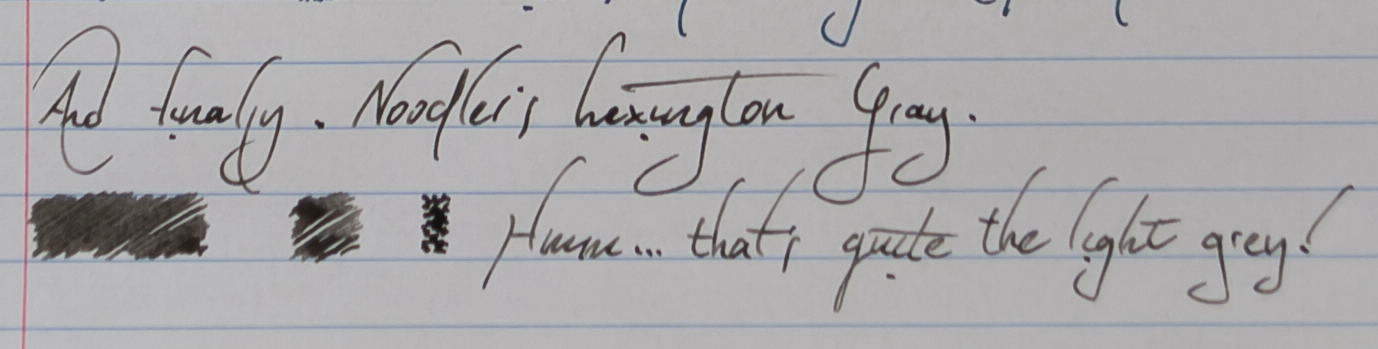 And finally. Noodler's Lexington Gray.
Humm... that's quite the light grey!